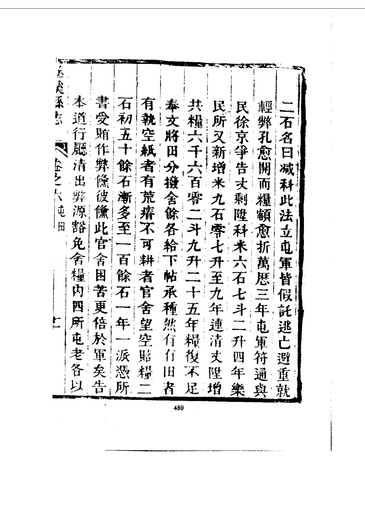 二石名曰减科此法立屯軍皆假託逃亡避重就
輕弊孔愈開而糧額愈折萬曆三年屯軍符通與
民徐京爭告丈剩陞科米六石七斗二升四年樂
民所又新增米九石零七升至九年達清丈陞增
共糧六千六百零二斗九升二十五年糧復不足
奉文將田分撥舍餘各給下帖承種然有有田者
有執空紙者有荒瘠不可耕者官舍望空賠糧二
石初五十餘石漸多至一百餘石一年一派憑所
書愛賄作弊僉彼僉此官舍困苦更倍於軍矣告
本道行廳清出弊源豁免舍糧內四所屯老各以
縣志
卷之六
屯田
489